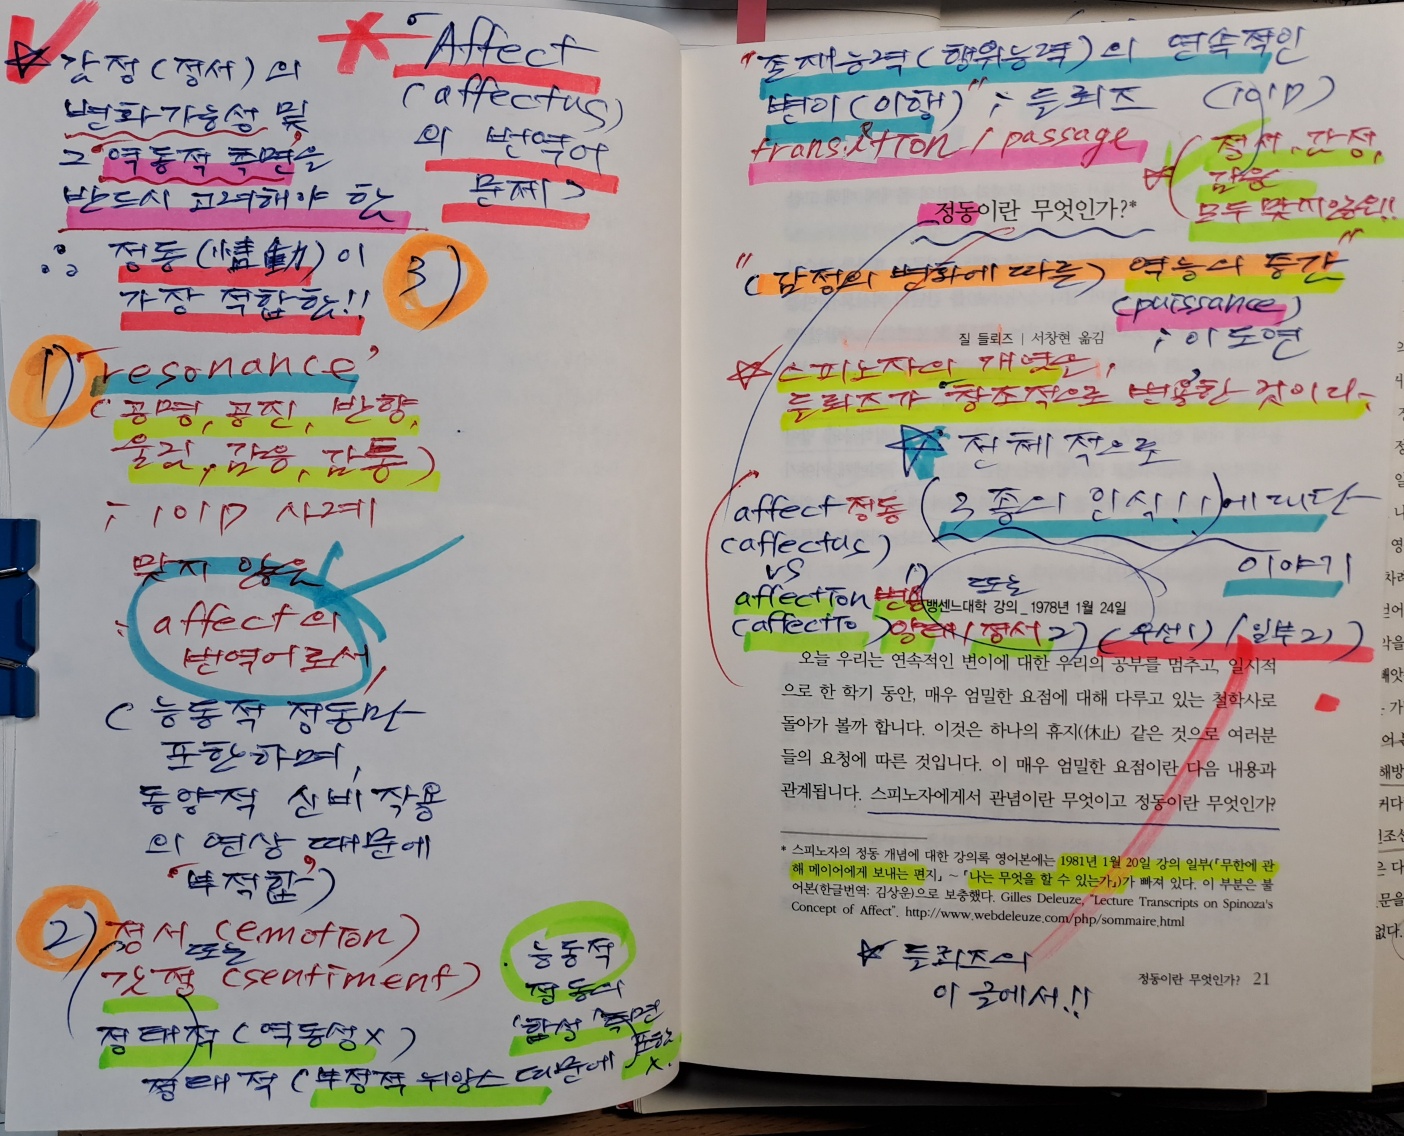 감정(정서)의
변화가능성 및
그 '역동적 측면'을
반드시 고려해야 함
∴ 정동(情動)이
가장 적합함!!
"Affect
(affectus)
의 번역어
문제>
3)
1) 'resonance'
(공명, 공진, 반향,
울림, 감응, 감통)
; 101P 사례
맞지 않은
affect의
번역어로서,
(능동적 정동만
포함하며,
동양적 신비작용
의 연상 때문에
'부적합')
2) 정서(emotion)
또는
감정(sentiment)
정태적(역동성x)
정태적(부정적 뉘앙스 때문에
능동적
정동의
'합성'측면
포함
x.
"존재능력(행위능력)의 연속적인
변이(이행)" ; 들뢰즈 (101P)
transition / passage
(정서, 감정,
감응
모두 맞지않음!!
정동이란 무엇인가?*
"(감정의 변화에 따른) 역능의 증감"
(puissance)
; 이도연
질 들뢰즈 | 서창현 옮김
스피노자의 개념을,
들뢰즈가 '창조적으로 변용'한 것이다.
전체적으로
(3종의 인식!!)에 대한
이야기
affect 정동
(affectus)
vs
affection 변용 1)
또는
(affectio) 양태 (정서 2) (우선1) (일부2)
뱅센느대학 강의_1978년 1월 24일
오늘 우리는 연속적인 변이에 대한 우리의 공부를 멈추고, 일시적
으로 한 학기 동안, 매우 엄밀한 요점에 대해 다루고 있는 철학사로
돌아가 볼까 합니다. 이것은 하나의 휴지(休止) 같은 것으로 여러분
들의 요청에 따른 것입니다. 이 매우 엄밀한 요점이란 다음 내용과
관계됩니다. 스피노자에게서 관념이란 무엇이고 정동이란 무엇인가?
* 스피노자의 정동 개념에 대한 강의록 영어본에는 1981년 1월 20일 강의 일부(「무한에 관
해 메이어에게 보내는 편지」 ~ 「나는 무엇을 할 수 있는가」)가 빠져 있다. 이 부분은 불
어본(한글번역: 김상운)으로 보충했다. Gilles Deleuze, "Lecture Transcripts on Spinoza's
Concept of Affect". http://www.webdeleuze.com/php/sommaire.html
들뢰즈의
이 글에서!!
정동이란 무엇인가? 21